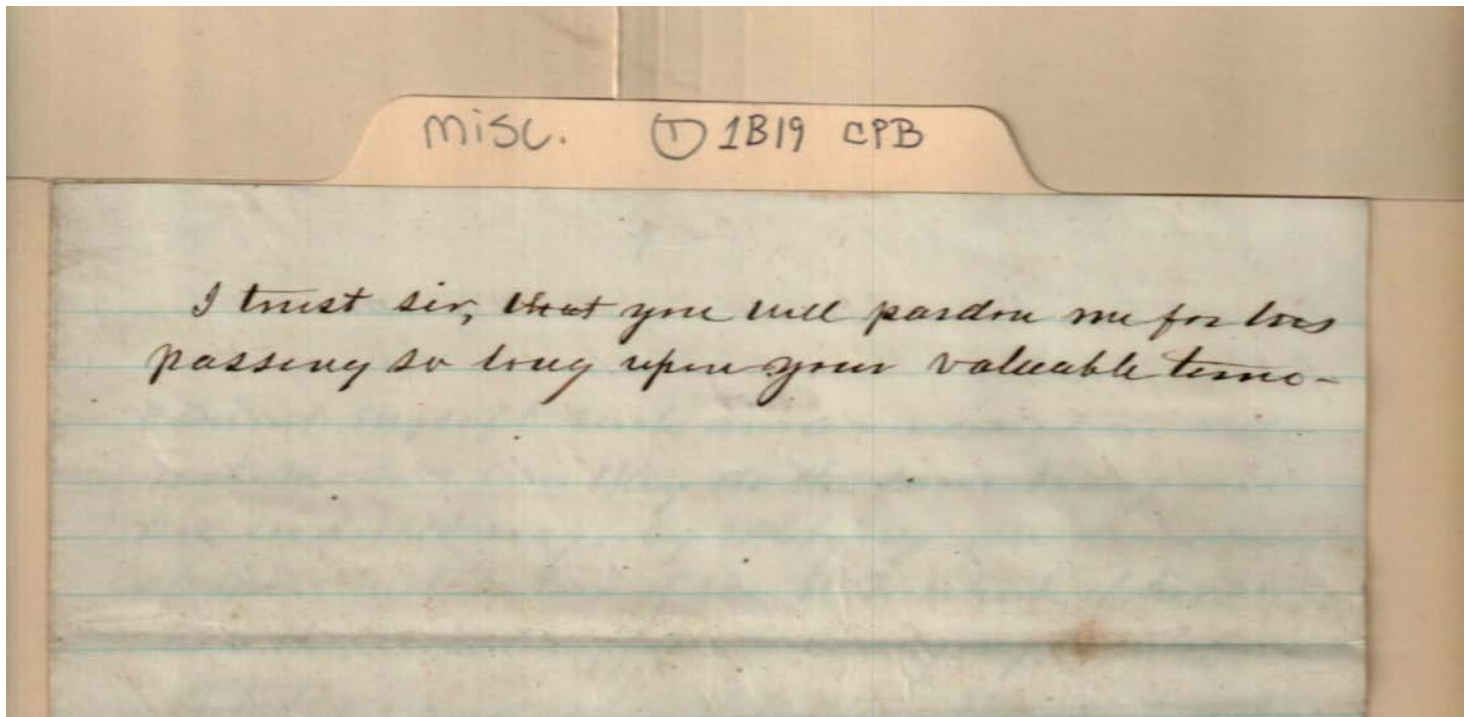 misc. ① 1B19 CPB
I trust sir, that you will pardon me for tres
passing so long upon your valuable time-